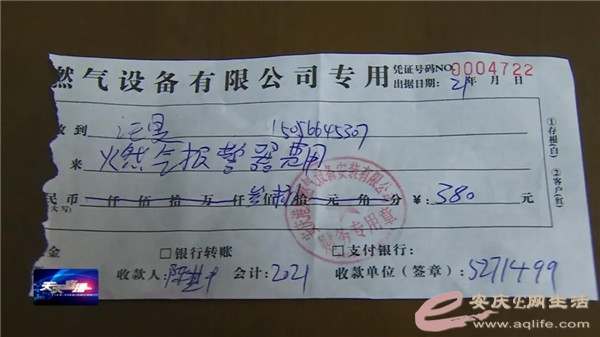 燃气设备有限公司专用 凭证号码NO 0004722
出据日期：21年 月 日
收到 15056645307
来 燃气报警器费用
民币(大写) 仟 佰 拾 万 仟 叁佰 捌拾 元 角 分 ¥：380 元
①存根(白)
②客户(红)
金 □银行转账 □支付银行：
收款人： 会计：2021 收款单位（签章）：5271499
财务专用章
安庆E网生活
www.aqlife.com